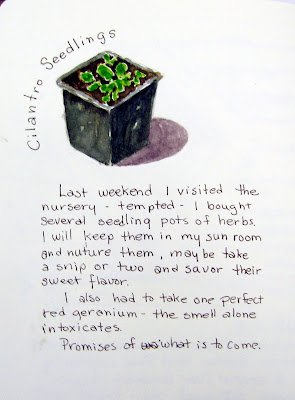 Cilantro Seedlings
Last weekend I visited the
nursery - tempted - I bought
several seedling pots of herbs.
I will keep them in my sun room
and nuture them, maybe take
a snip or two and savor their
sweet flavor.
I also had to take one perfect
red geranium - the smell alone
intoxicates.
Promises of what is to come.